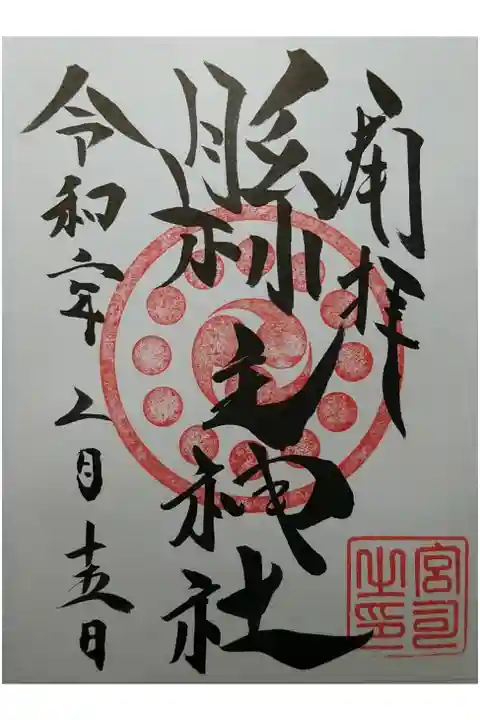 奉拝
縣主神社
令和年月十五日
宮司之印